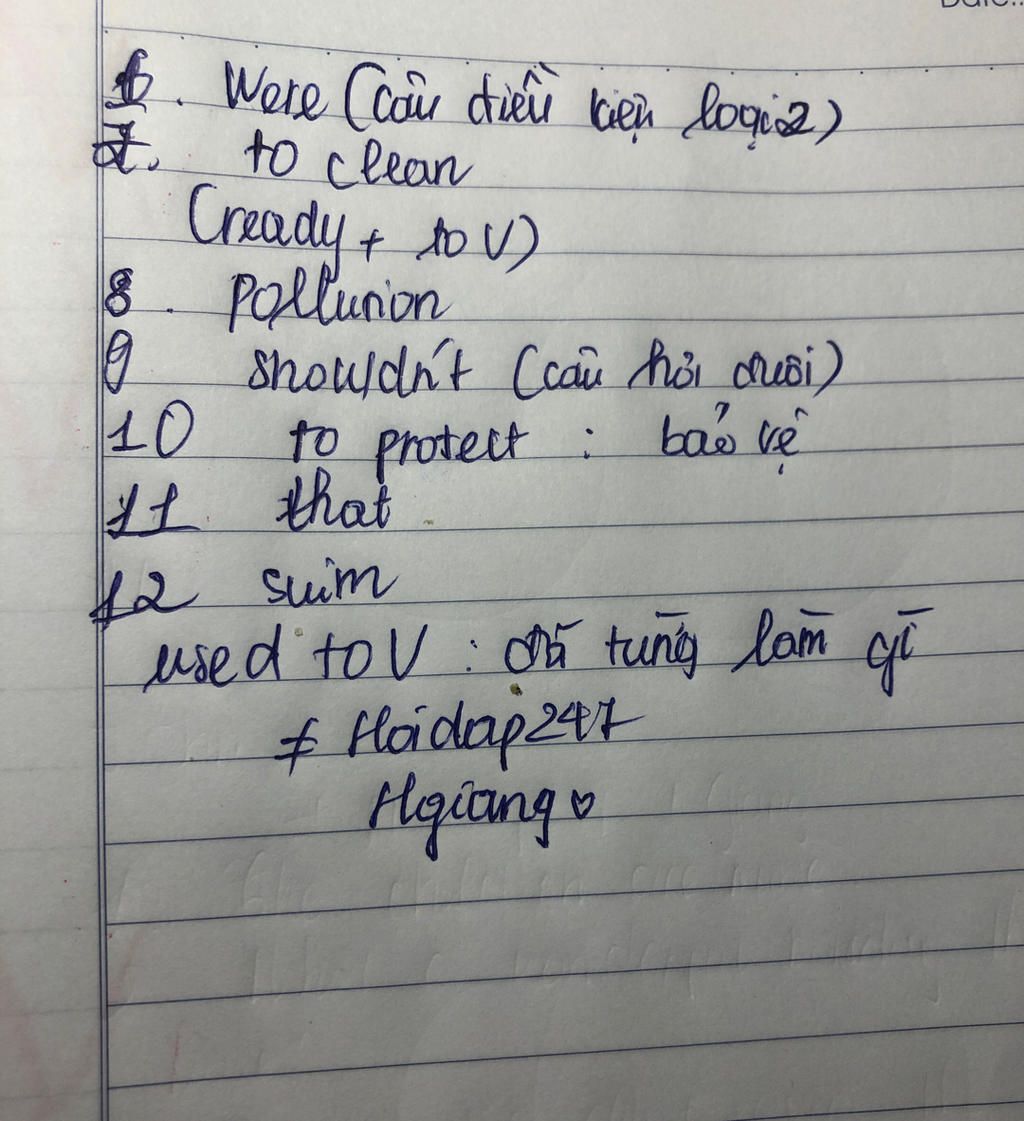 6. Were (câu điều kiện loại 2)
7. to clean
(ready + to V)
8. Pollution
9 shouldn't (câu hỏi đuôi)
10 to protect : bảo vệ
11 that
12 swim
used to V : đã từng làm gì
≠ Hoidap247
Hgiang ♡